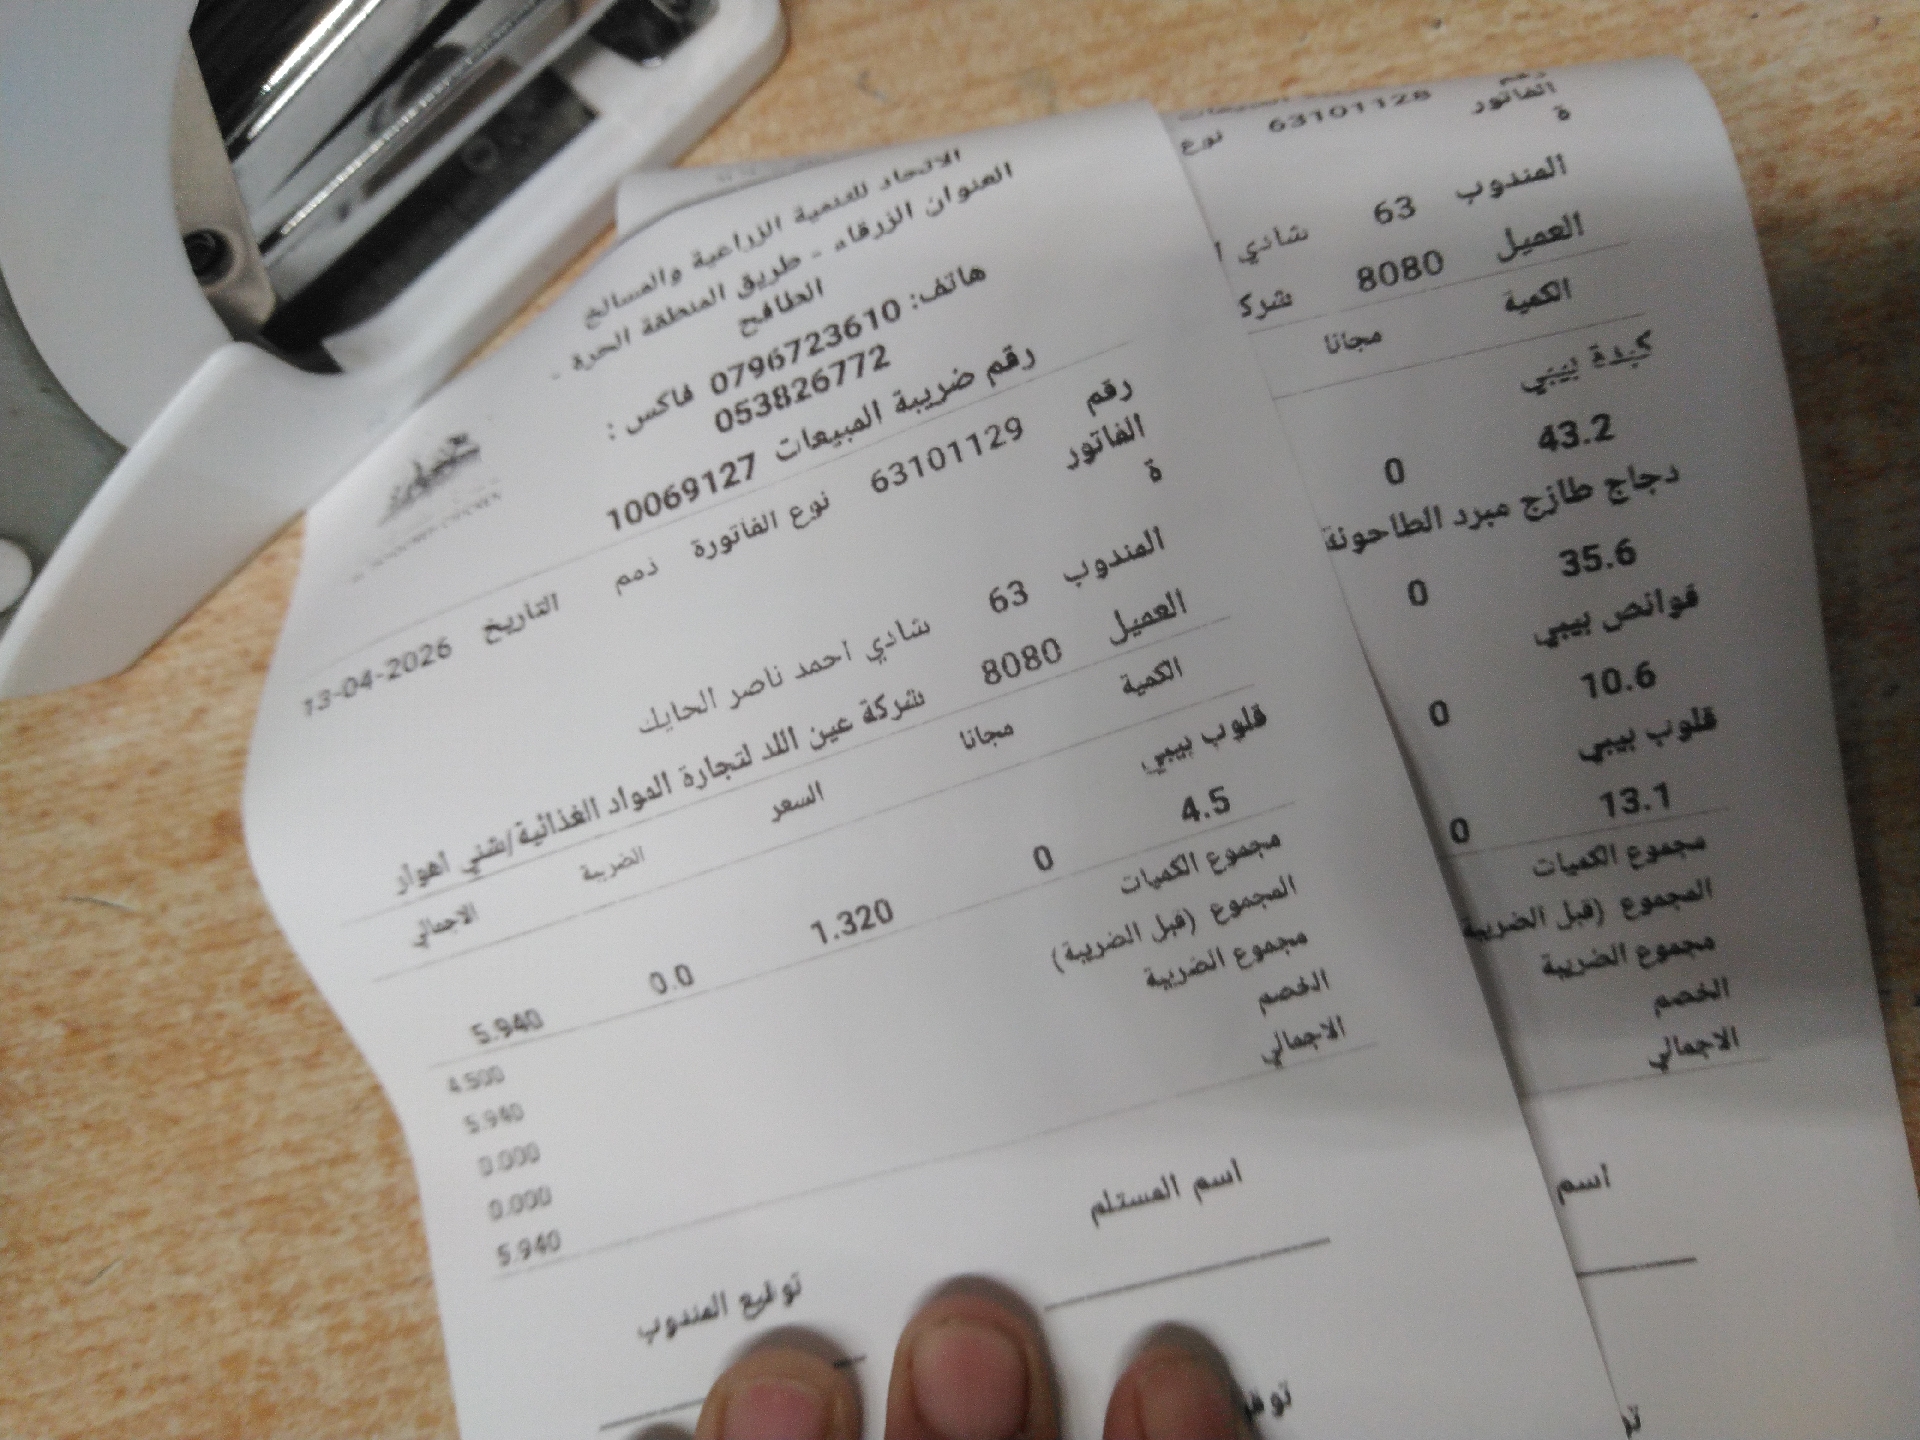 الاتحاد للتنمية الزراعية والمسالخ
العنوان الزرقاء - طريق المنطقة الحرة -
الطافح
هاتف: 0796723610 فاكس :
053826772
رقم ضريبة المبيعات 10069127
رقم الفاتورة 63101129 نوع الفاتورة ذمم التاريخ 13-04-2026
المندوب 63 شادي احمد ناصر الحايك
العميل 8080 شركة عين اللد لتجارة المواد الغذائية/شني أهوار
الكمية مجانا السعر الضريبة الاجمالي
قلوب بيبي
4.5 0 1.320 0.0 5.940
مجموع الكميات 4.500
المجموع (قبل الضريبة) 5.940
مجموع الضريبة 0.000
الخصم 0.000
الاجمالي 5.940
اسم المستلم
توقيع المندوب
توق
رقم الفاتورة 63101128 نوع
المندوب 63 شادي ا
العميل 8080 شرك
الكمية مجانا
كبدة بيبي
43.2 0
دجاج طازج مبرد الطاحونة
35.6 0
قوانص بيبي
10.6 0
قلوب بيبي
13.1 0
مجموع الكميات
المجموع (قبل الضريبة
مجموع الضريبة
الخصم
الاجمالي
اسم